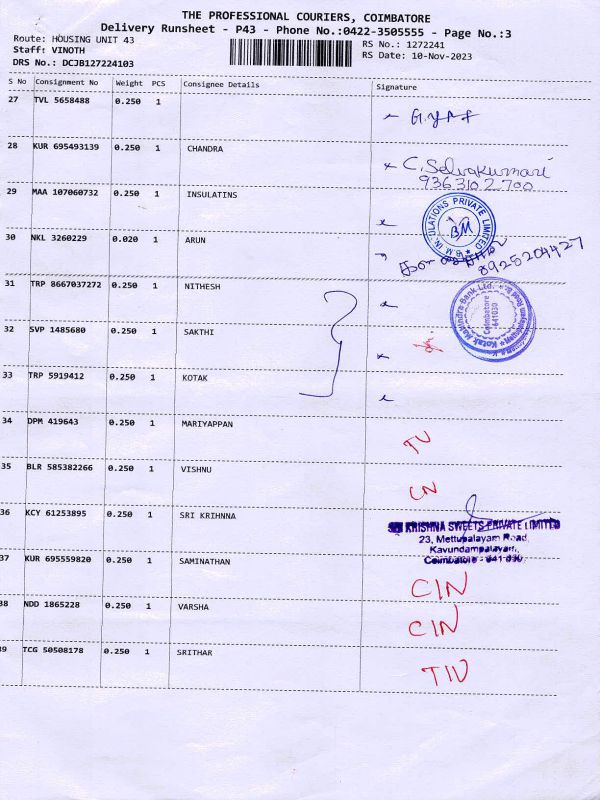 THE PROFESSIONAL COURIERS, COIMBATORE
Delivery Runsheet - P43 - Phone No.:0422-3505555 - Page No.:3
Route: HOUSING UNIT 43
Staff: VINOTH
DRS No.: DCJB127224103
RS No.: 1272241
RS Date: 10-Nov-2023
S No Consignment No Weight PCS Consignee Details Signature
27 TVL 5658488 0.250 1
28 KUR 695493139 0.250 1 CHANDRA C. Selvakumari
9363102700
29 MAA 107060732 0.250 1 INSULATINS
B.M. INSULATIONS PRIVATE LIMITED
BM
30 NKL 3260229 0.020 1 ARUN 8925204427
31 TRP 8667037272 0.250 1 NITHESH
Kotak Mahindra Bank Ltd.
Coimbatore
641030
32 SVP 1485680 0.250 1 SAKTHI
33 TRP 5919412 0.250 1 KOTAK
34 DPM 419643 0.250 1 MARIYAPPAN
35 BLR 585382266 0.250 1 VISHNU
36 KCY 61253895 0.250 1 SRI KRIHNNA
SRI KRISHNA SWEETS PRIVATE LIMITED
23, Mettupalayam Road,
Kavundampalayam,
Coimbatore - 641 030
37 KUR 695559820 0.250 1 SAMINATHAN CIN
38 NDD 1865228 0.250 1 VARSHA CIN
39 TCG 50508178 0.250 1 SRITHAR